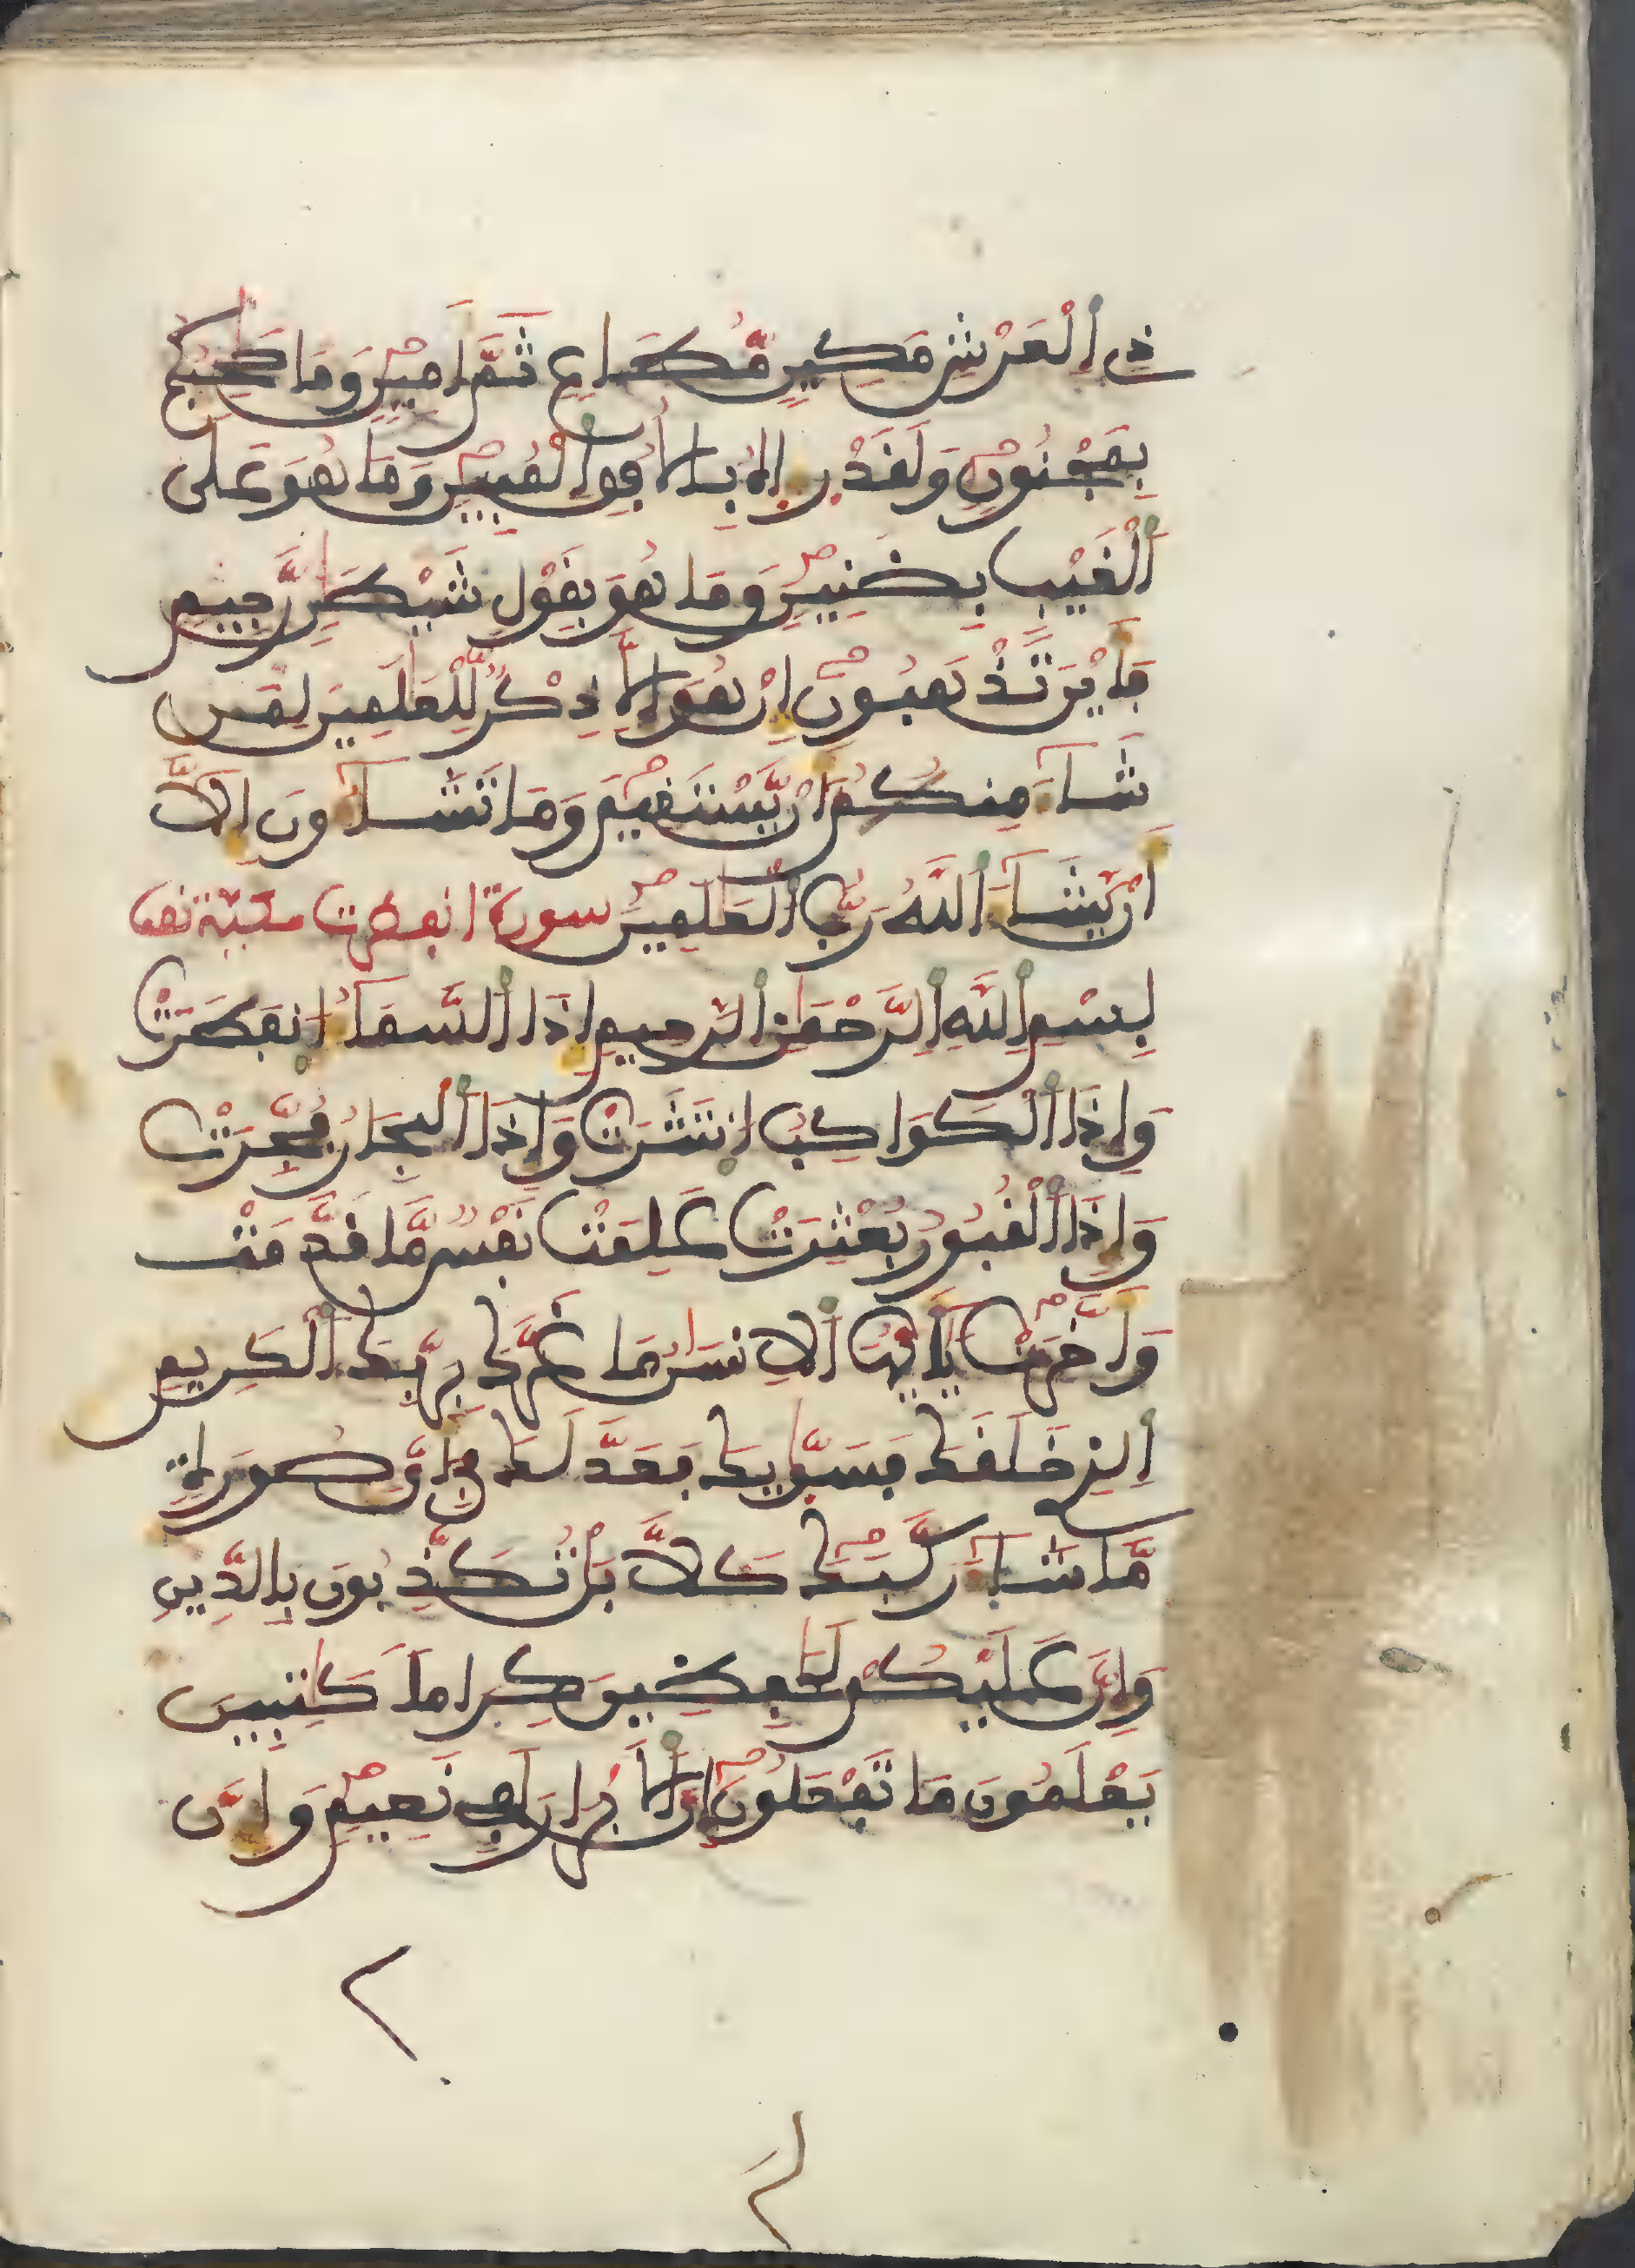 ذِى اِ۬لْعَرْشِ مَكِينٍ مُّطَاعٍ ثَمَّ أَمِينٍ وَمَا صَٰحِبُكُم
بِمَجْنُونٍ وَلَقَدْ ر۪ءِاهُ بِالُافُقِ اِ۬لْمُبِينِ وَمَا هُوَ عَلَى
اَ۬لْغَيْبِ بِضَنِينٍ وَمَا هُوَ بِقَوْلِ شَيْطَٰنٍ رَّجِيمٍ
فَأَيْنَ تَذْهَبُونَ إِنْ هُوَ إِلَّا ذِكْرٌ لِّلْعَٰلَمِينَ لِمَن
شَآءَ مِنكُمُ أَنْ يَّسْتَقِيمَ وَمَا تَشَآءُونَ إِلَّآ
أَنْ يَّشَآءَ اَ۬للَّهُ رَبُّ اُ۬لْعَٰلَمِينَ سورة انفطرت مكية
بِسْمِ اِ۬للَّهِ اِ۬لرَّحْمَٰنِ اِ۬لرَّحِيمِ إِذَا اَ۬لسَّمَآءُ اُ۪نفَطَرَتْ
وَإِذَا اَ۬لْكَوَاكِبُ اُ۪نتَثَرَتْ وَإِذَا اَ۬لْبِحَارُ فُجِّرَتْ
وَإِذَا اَ۬لْقُبُورُ بُعْثِرَتْ عَلِمَتْ نَفْسٌ مَّا قَدَّمَتْ
وَأَخَّرَتْ يَٰٓأَيُّهَا اَ۬لِانسَٰنُ مَا غَرَّكَ بِرَبِّكَ اَ۬لْكَرِيمِ
اِ۬لذِى خَلَقَكَ فَسَوّ۪يٰكَ فَعَدَّلَكَ فِىٓ أَىِّ صُورَةٍ
مَّا شَآءَ رَكَّبَكَ كَلَّا بَلْ تُكَذِّبُونَ بِالدِّينِ
وَإِنَّ عَلَيْكُمْ لَحَٰفِظِينَ كِرَاماً كَٰتِبِينَ
يَعْلَمُونَ مَا تَفْعَلُونَ إِنَّ اَ۬لَابْرَارَ لَفِى نَعِيمٍ وَإِنَّ